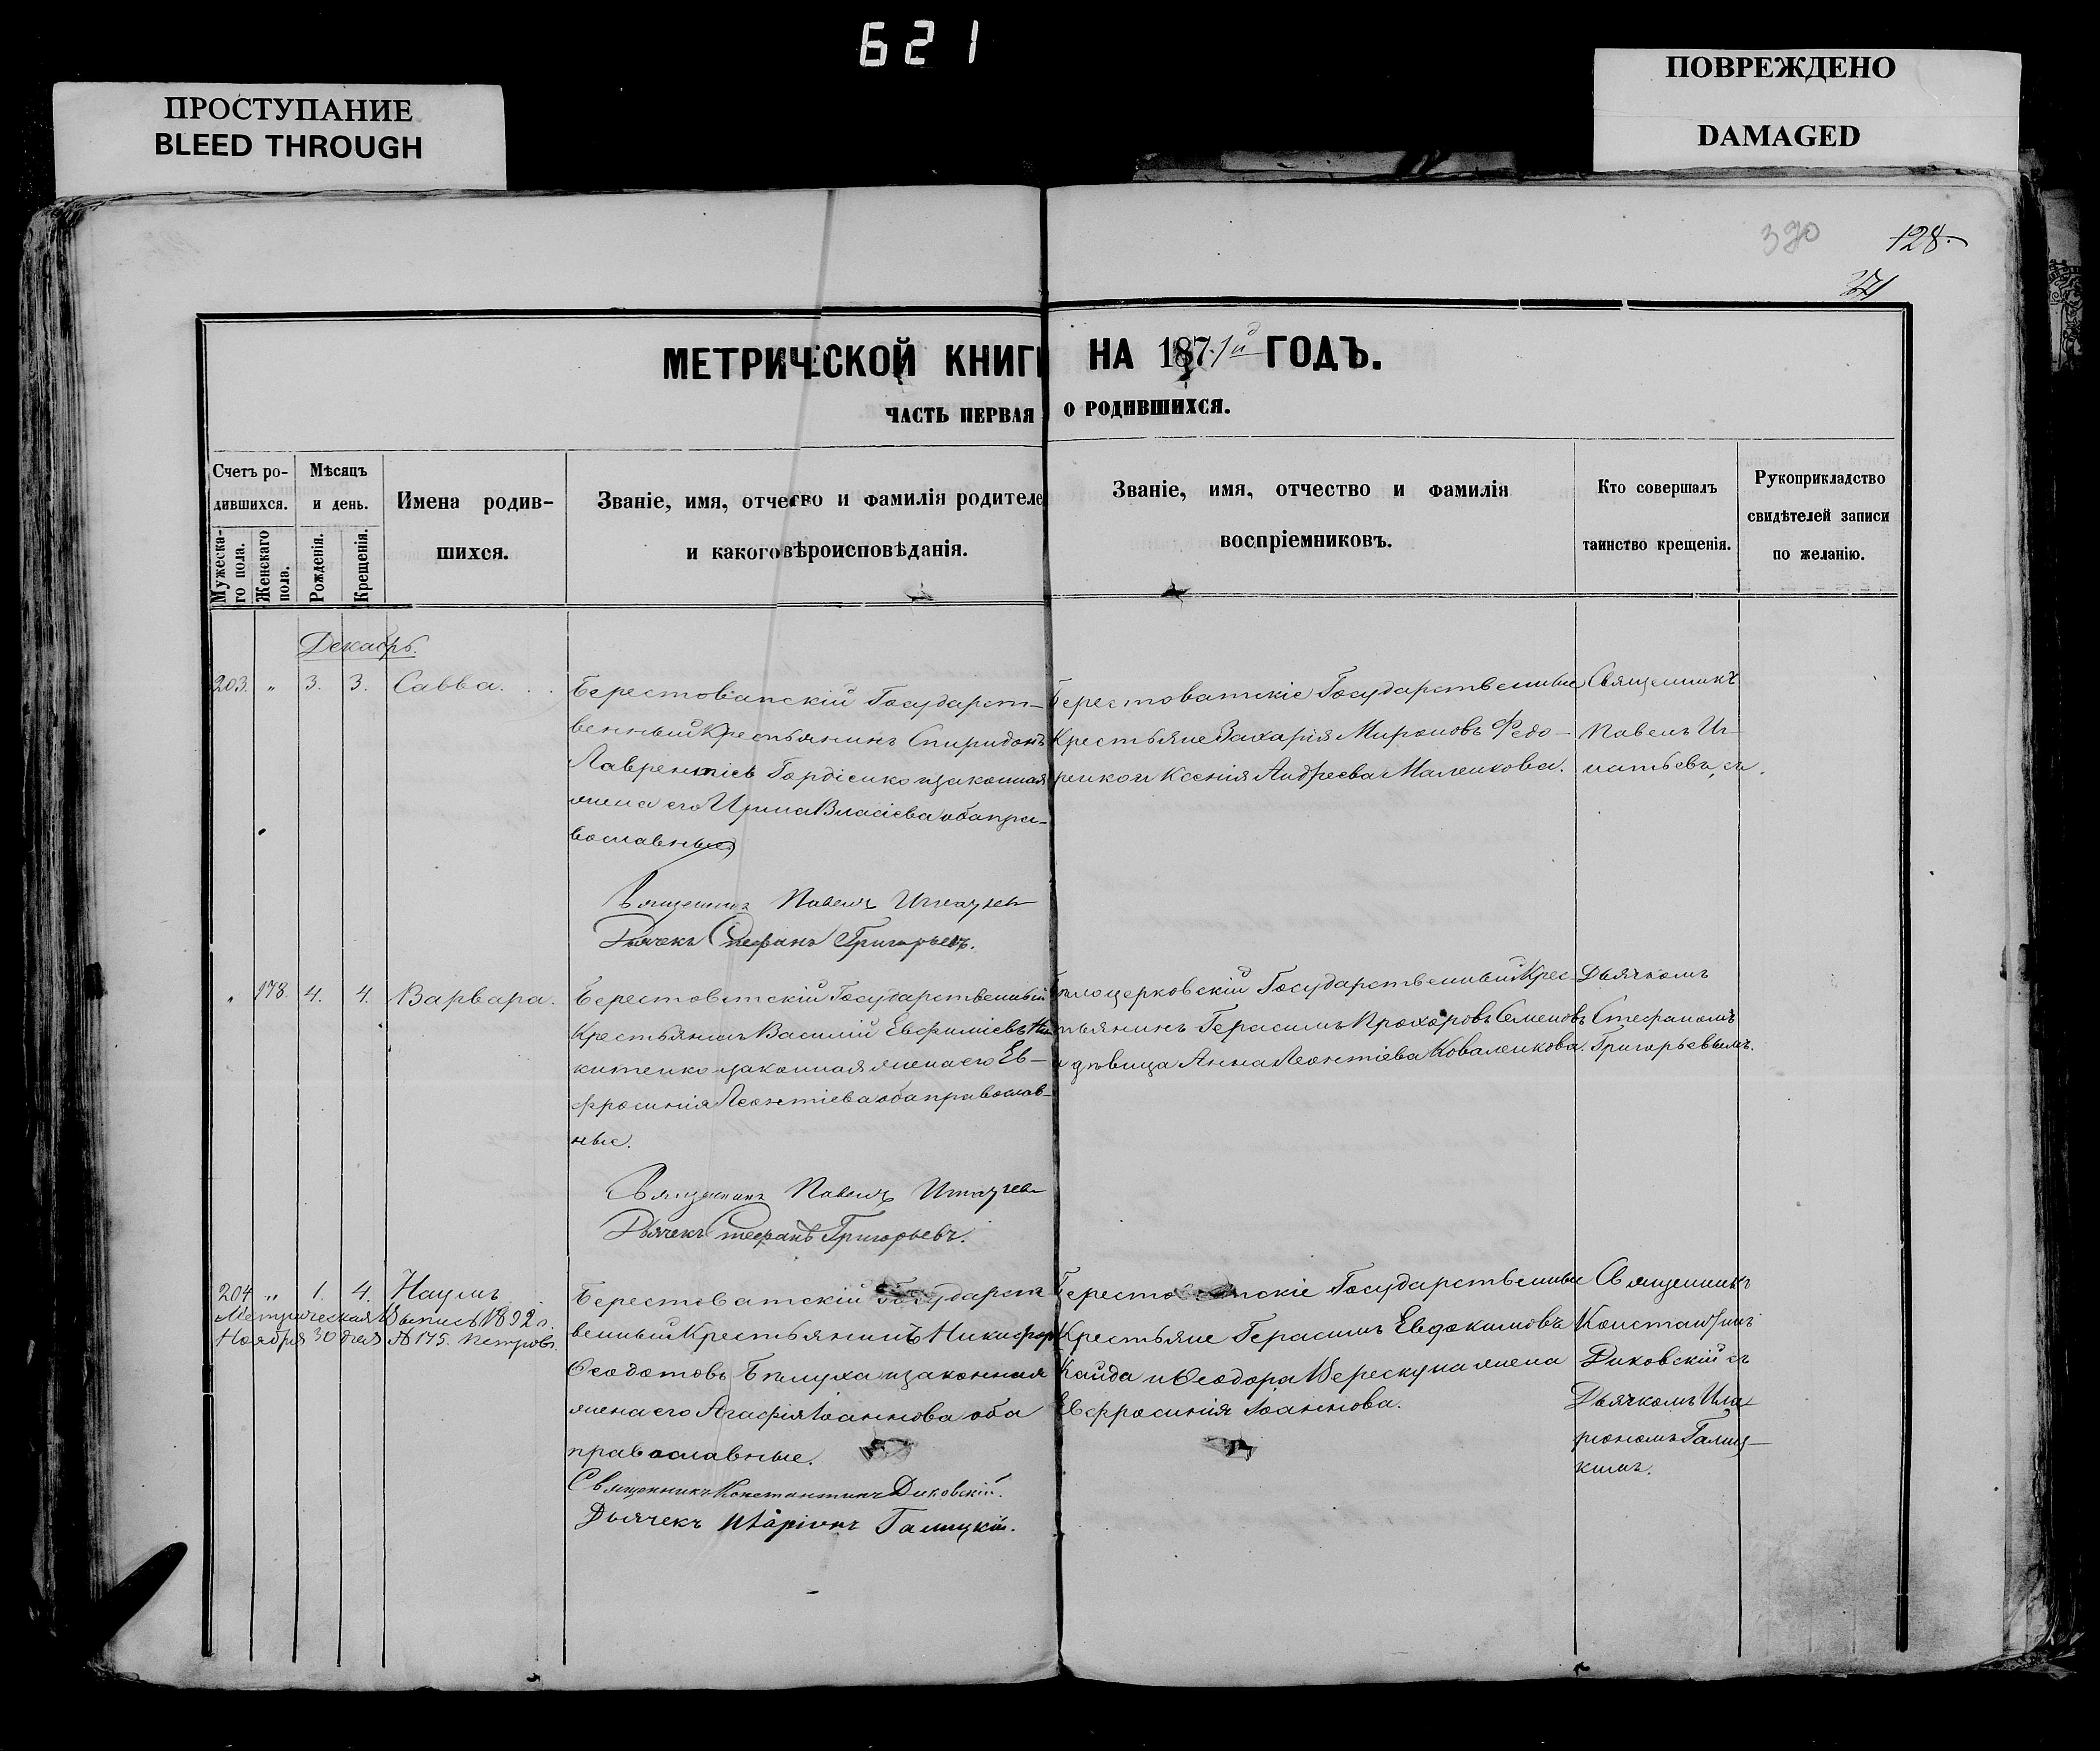 621
ПРОСТУПАНИЕ
BLEED THROUGH
ПОВРЕЖДЕНО
DAMAGED
390
128.
МЕТРИЧЕСКОЙ КНИГИ НА 1871й ГОДЪ.
ЧАСТЬ ПЕРВАЯ О РОДИВШИХСЯ.
Счетъ ро-
дившихся.
Мужеска-
го пола.
Женскаго
пола.
Мѣсяцъ
и день.
Рожденія.
Крещенія.
Имена родив-
шихся.
Званіе, имя, отчество и фамилія родителе
и какого вѣроисповѣданія.
Званіе, имя, отчество и фамилія
воспріемниковъ.
Кто совершалъ
таинство крещенія.
Рукоприкладство
свидѣтелей записи
по желанію.
Декабрь.
203. " 3. 3. Савва.
Берестоватскій Государст-
венный Крестьянинъ Спиридонъ
Лаврентіев Гордіенко и законная
жена его Ирина Власіева оба пра-
вославные
Священникъ Павелъ Игнатьев
Дьячекъ Стефанъ Григорьевъ.
Берестоватскіе Государственные
Крестьяне Захарія Мироновъ Федо-
ренко и Ксенія Андреева Маленкова.
Священникъ
Павелъ Иг-
натьевъ, съ
" 178. 4. 4. Варвара.
Берестоватскій Государственный
Крестьянинъ Василій Евфиміевъ Ни
китенко и законная жена его Ев-
фросинія Леонтіева оба православ-
ные.
Священникъ Павелъ Игнатьев
Дьячекъ Стефанъ Григорьевъ.
Бѣлоцерковскій Государственный Крес-
тьянинъ Герасимъ Прохоровъ Семеновъ
и дѣвица Анна Леонтіева Коваленкова.
Дьячкомъ
Стефаномъ
Григорьевымъ.
204 " 1. 4. Наумъ
Метрическая Выпись 1892 г.
Ноября 30 дня № 175. Петровъ.
Берестоватскій Государст
венный Крестьянинъ Никифоръ
Ѳеодотовъ Бѣлуха и законная
жена его Агафія Іоаннова оба
православные.
Священникъ Константинъ Диковскій.
Дьячекъ Иларіонъ Галицкій.
Берестоватскіе Государственные
Крестьяне Герасимъ Евдокимовъ
Кайда и Ѳеодора Верескуна жена
Евфросинія Іоаннова.
Священникъ
Константинъ
Диковскій съ
Дьячкомъ Ила
ріономъ Галиц-
кимъ.